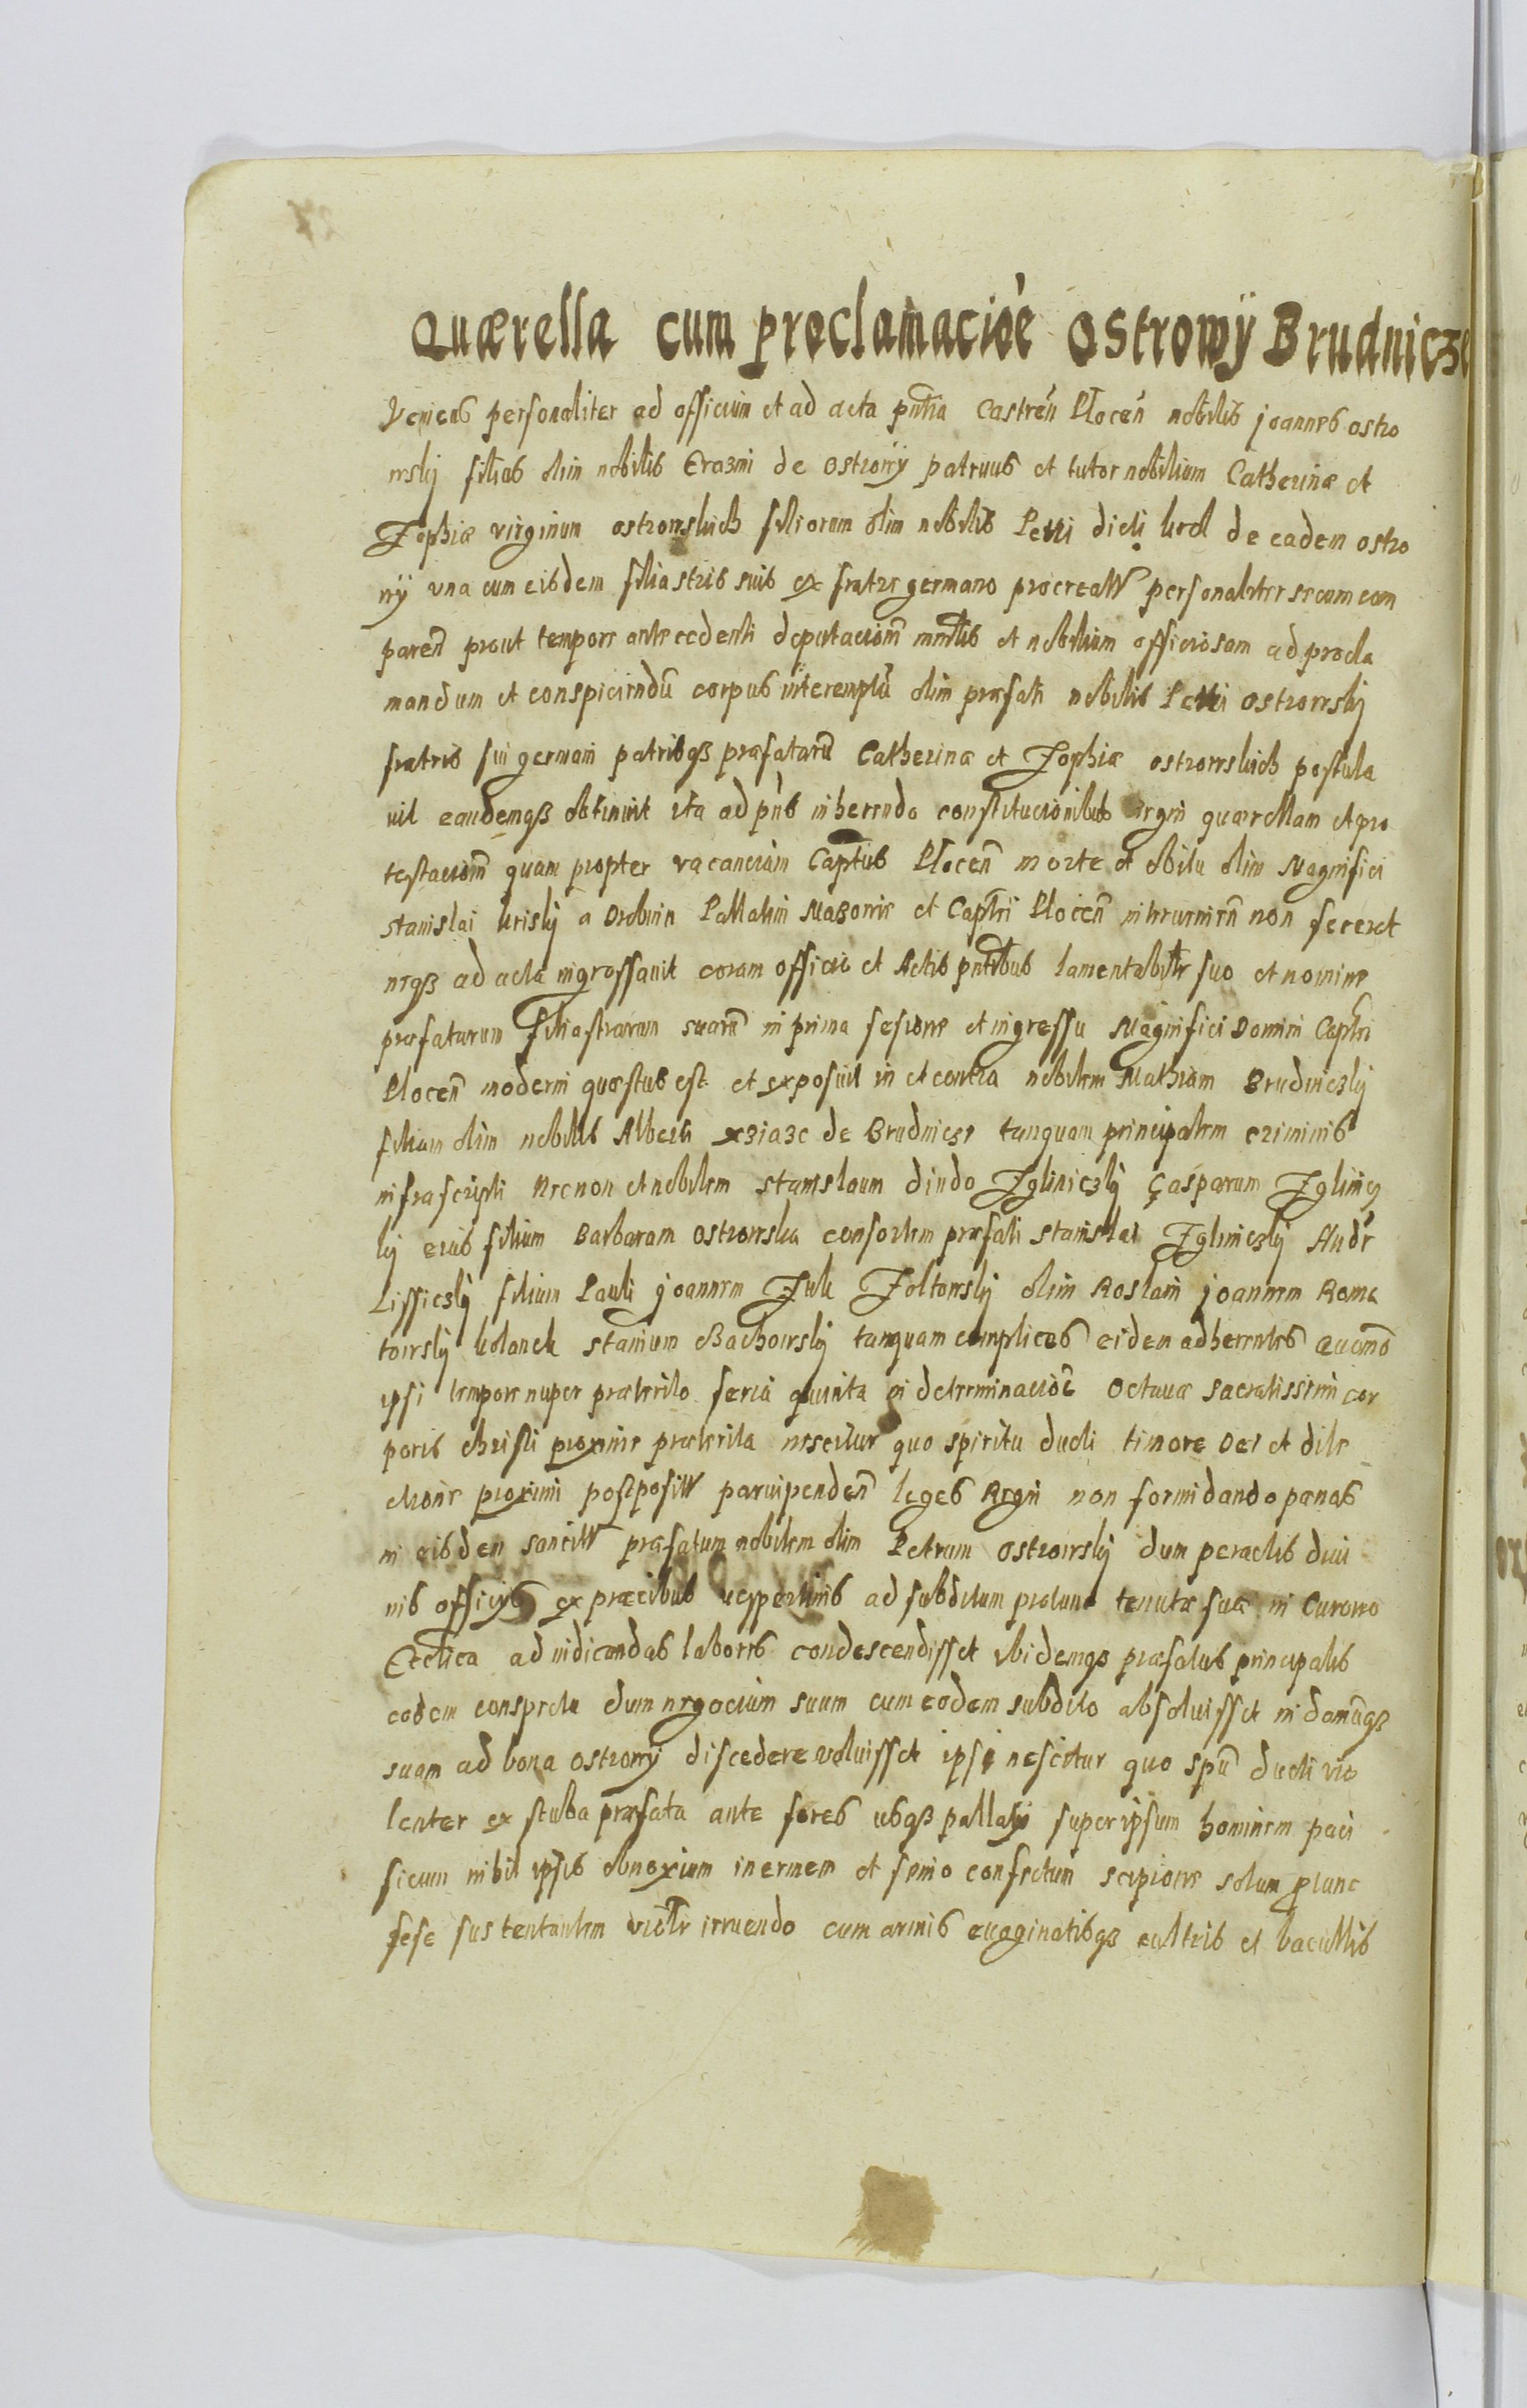 Quærella cum proclamacioe Ostrowÿ Brudnicze
Veniens personaliter ad officium et ad acta pntia Castren Plocen nobilis joannes ostro
wskÿ filius olim nobilis Erazmi de Ostrowÿ patruus et tutor nobilium Catherinæ et
Zophiæ virginum ostrowskich filiorum olim nobilis Petri dicti krol de eadem ostro
wÿ una cum eisdem filiastris suis ex fratre germano procreatis personaliter secum com
paren prout tempore antecedenti deputacionem mnrlis et nobilium officiosam ad procla
mandum et conspiciendu corpus interemptu olim præfati nobilis Petri Ostrowskÿ
fratris sui germani patrisqз præfataru Catherinæ et Zophiæ ostrowskich postula
vit eandemqз obtinuit ita ad pns inherendo constitucionibus Regni quærellam et pro
testacionem quam propter vacanciam Captus Plocen morte et obitu olim Magnifici
stanislai kriskÿ a Drobnin Pallatini Mazovie et Captei Plocen interuenien non fecerat
neqз ad acta ingrossavit coram officio et Actis pntibus lamentabiltr suo et nomine
præfatarum filiastrarum suaru in prima sesione et ingressu Magnifici Domini Captei
Plocen moderni quæstus est et exposuit in et contra nobilem Mathiam Brudniczkÿ
filium olim nobilis Alberti xзiaзe de Brudnicze tanquam principalem criminis
infrascripti Necnon et nobilem stanislaum dindo Zgliniczkÿ Gasparum Zglinicz
kÿ eius filium Barbaram Ostrowska consortem præfati stanislai Zgliniczkÿ Andr
Lissiczkÿ filium Pauli joannem Zuk Zoltowskÿ olim Roslani joannem Roma
towskÿ kolanek stanium Bachowskÿ tanquam complices eidem adherentes
ipsi tempore nuper præterito feria quinta in determinacioe Octauæ sacratissimi cor
poris christi proxime præterita nescitur quo spiritu ducti timore Dei et dile
ctione proximi postpositis paruipenden leges Regni non formidando pænas
in eisdem sancitis præfatum nobilem olim Petrum Ostrowskÿ dum peractis diui
nis officÿs ex præcibus vespertinis ad subditum protunc tenutæ suæ in Curowo
Ecclica ad indicandas labores condescendisset ibidemqз præfatus principalis
eodem conspectu dum negocium suum cum eodem subdito absoluisset in domuqз
suam ad bona Ostrowÿ discedere voluisset ipsi nescitur quo spu ducti vio
lenter ex stuba præfata ante fores usqз pallatÿ super ipsum hominem paci
ficum nihil ipsis obnoxium inermem et senio confectum scipione solum ptunc
sese sustentantem violtr irruendo cum armis euaginatisqз cultris et bacullis